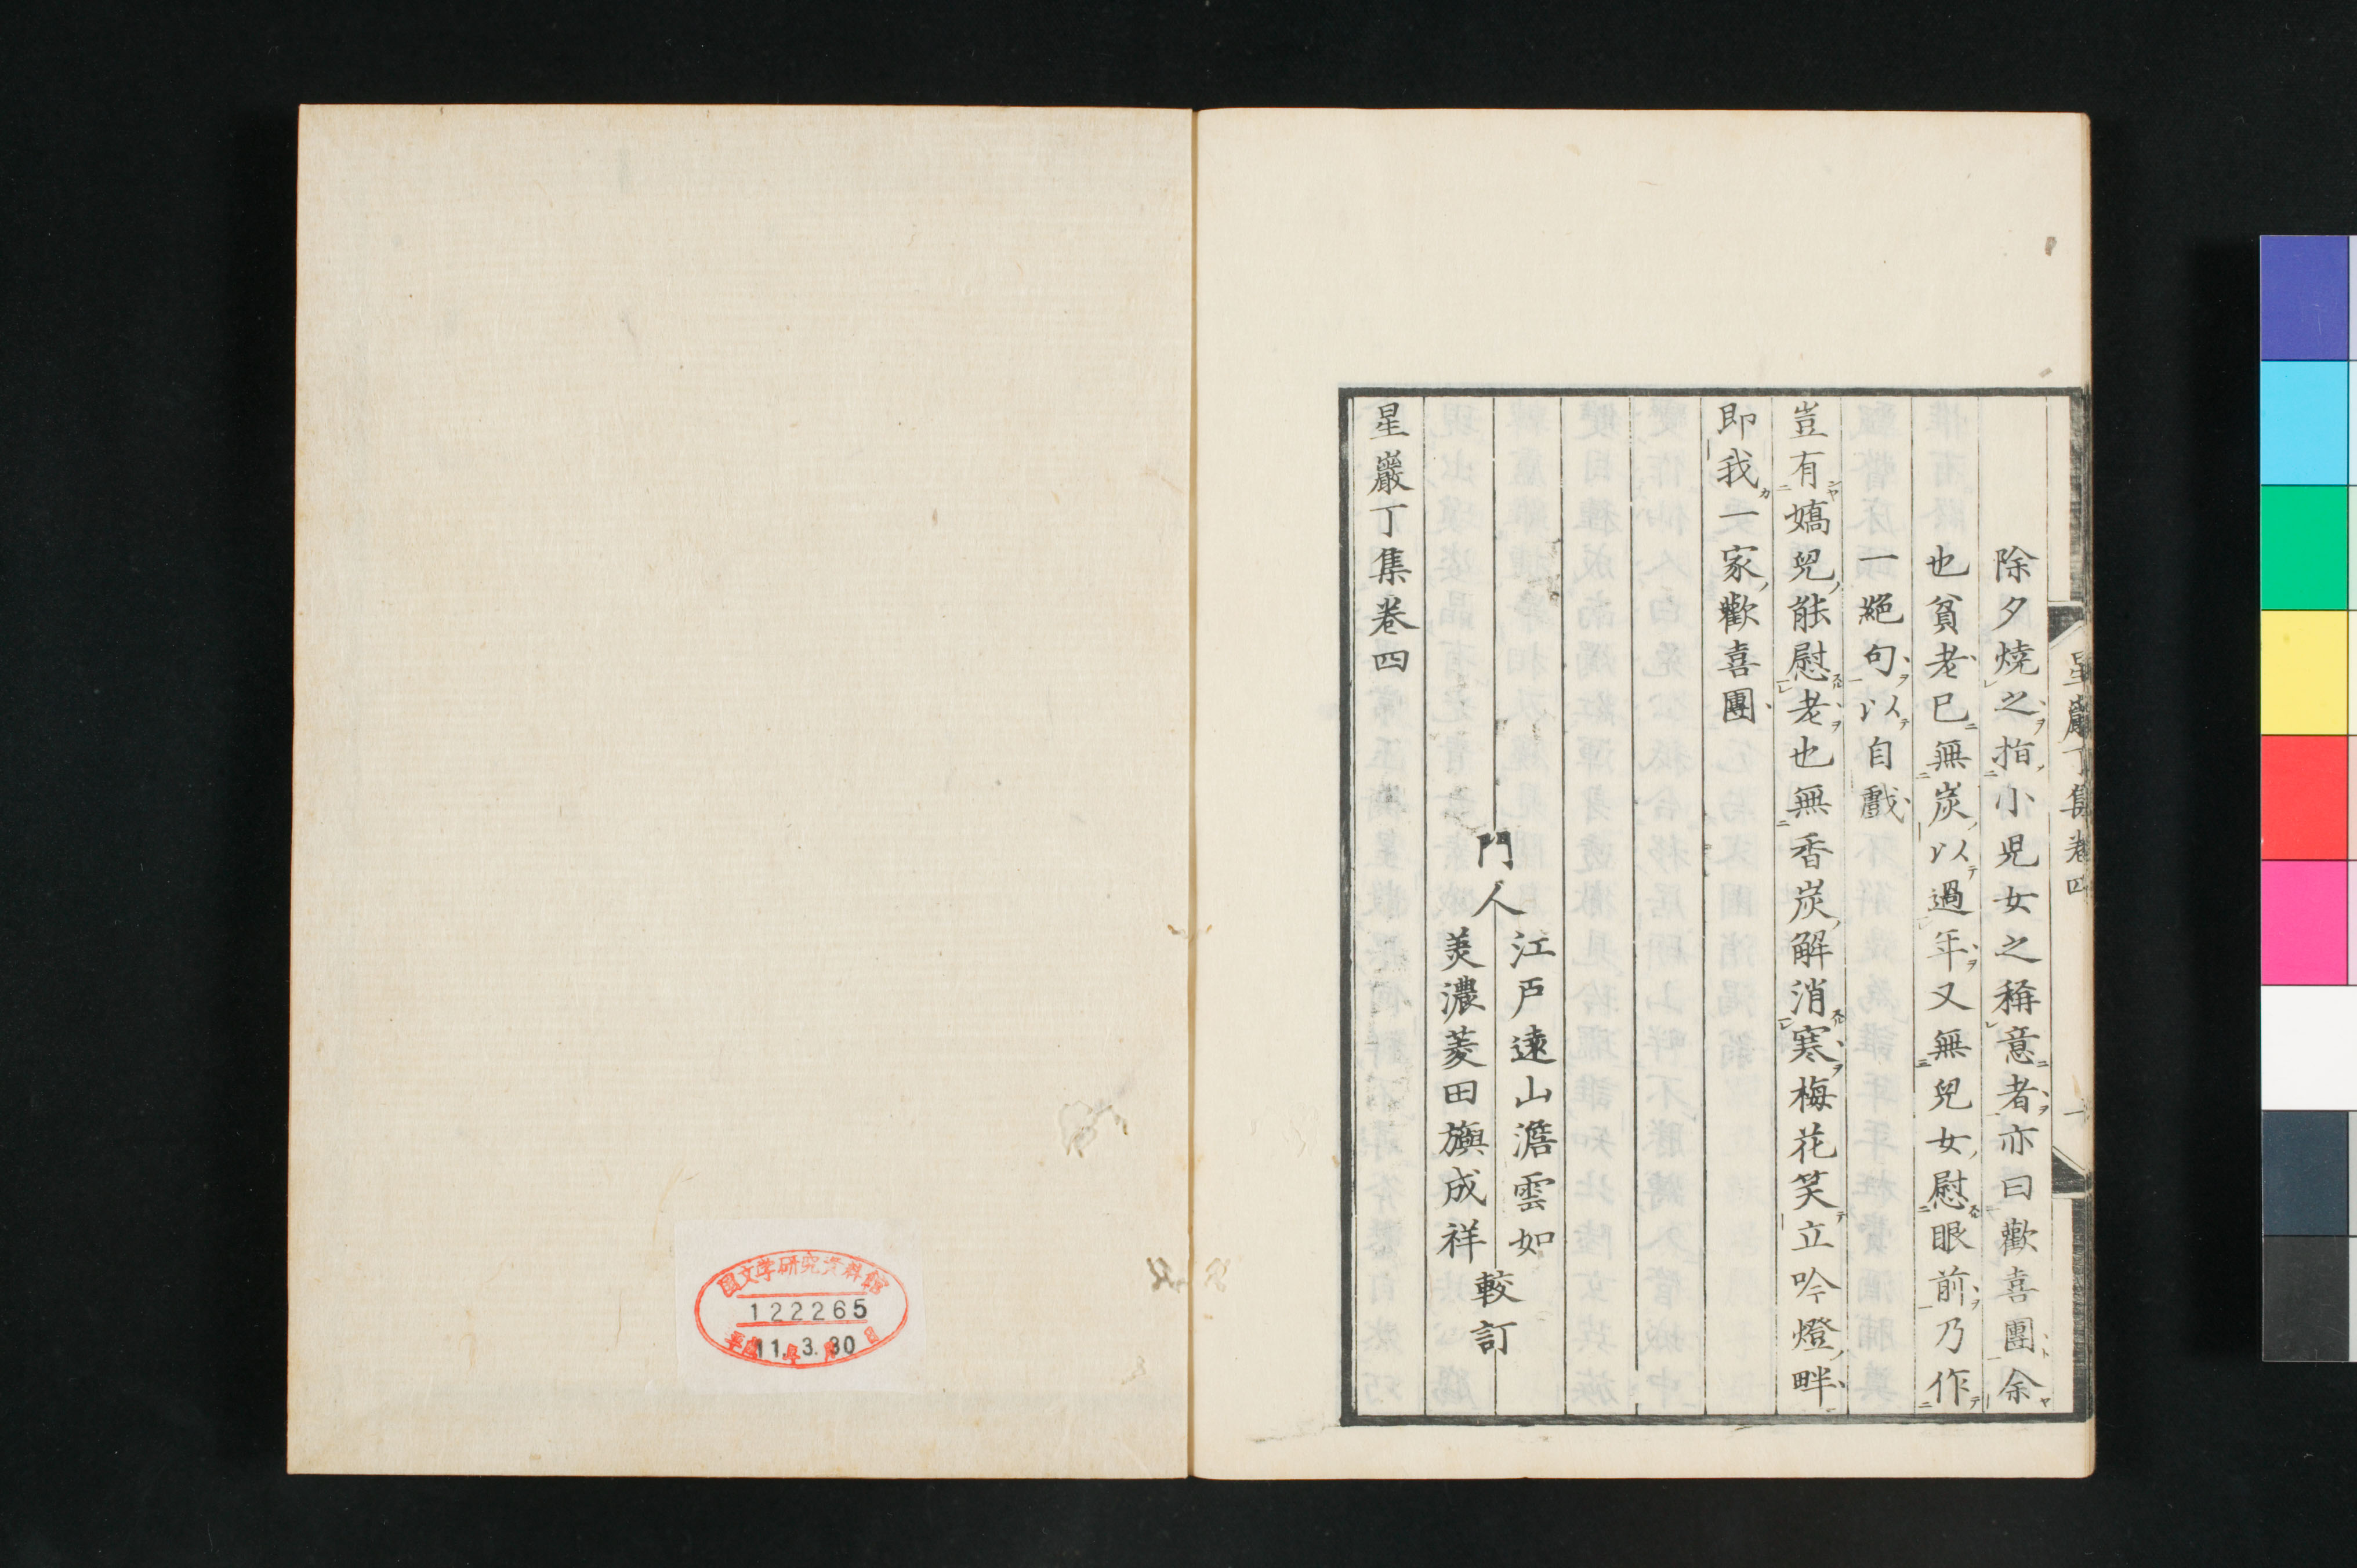 除夕燒之指小児女之稱意者亦曰歡喜團余
也貧老已無炭以過年又無兒女慰眼前乃作
一絕句以自戲
豈有嬌兒能慰老也無香炭解消寒梅花笑立吟燈畔
即我一家歡喜團
門人
江戸遠山澹雲如
美濃菱田旟成祥
較訂
星巖丁集卷四
星巖丁集卷四
国文学研究資料館
122265
11.3.30